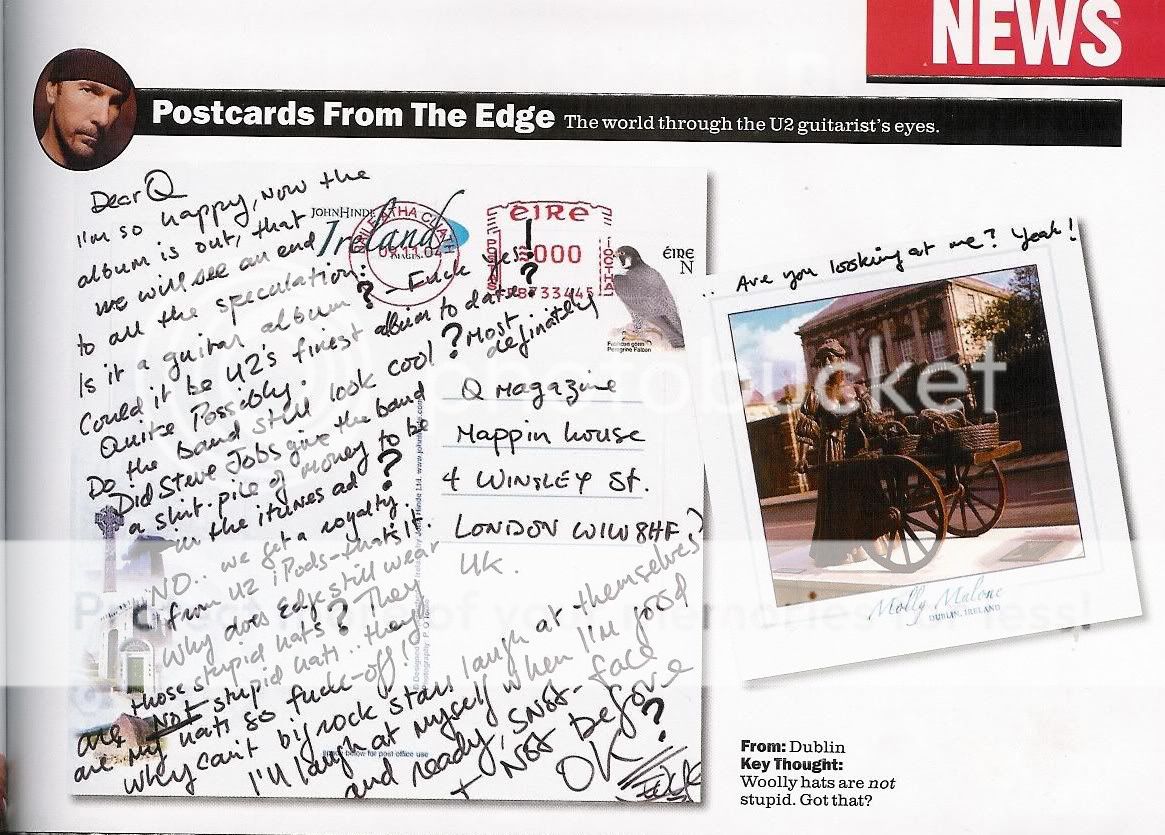 NEWS
Postcards From The Edge The world through the U2 guitarist's eyes.
Dear Q
I'm so happy, now the
album is out, that
we will see an end
to all the speculation:
Is it a guitar album? – Fuck yes!
Could it be U2's finest album to date?
Quite Possibly.
Do the band still look cool? Most
definately
Did Steve Jobs give the band
a shit-pile of money to be
in the itunes ad?
NO.. we get a royalty..
from U2 iPods – that's it.
Why does Edge still wear
those stupid hats? They
are NOT stupid hats.. they
are my hats so fuck-off!
Why can't big rock stars laugh at themselves?
I'll laugh at myself when I'm good
and ready, snot-face
+ NOT before
OK?
Edge
JOHN HINDE
Ireland
IMAGES
09.11.04
éIRe
000
ÉIRE
N
Peregrine Falcon
Q Magazine
Mappin House
4 WINSLEY St.
LONDON W1W 8HF
UK.
below for post office use
.. Are you looking at me? Yeah!
Molly Malone
DUBLIN, IRELAND
photobucket
From: Dublin
Key Thought:
Woolly hats are not
stupid. Got that?